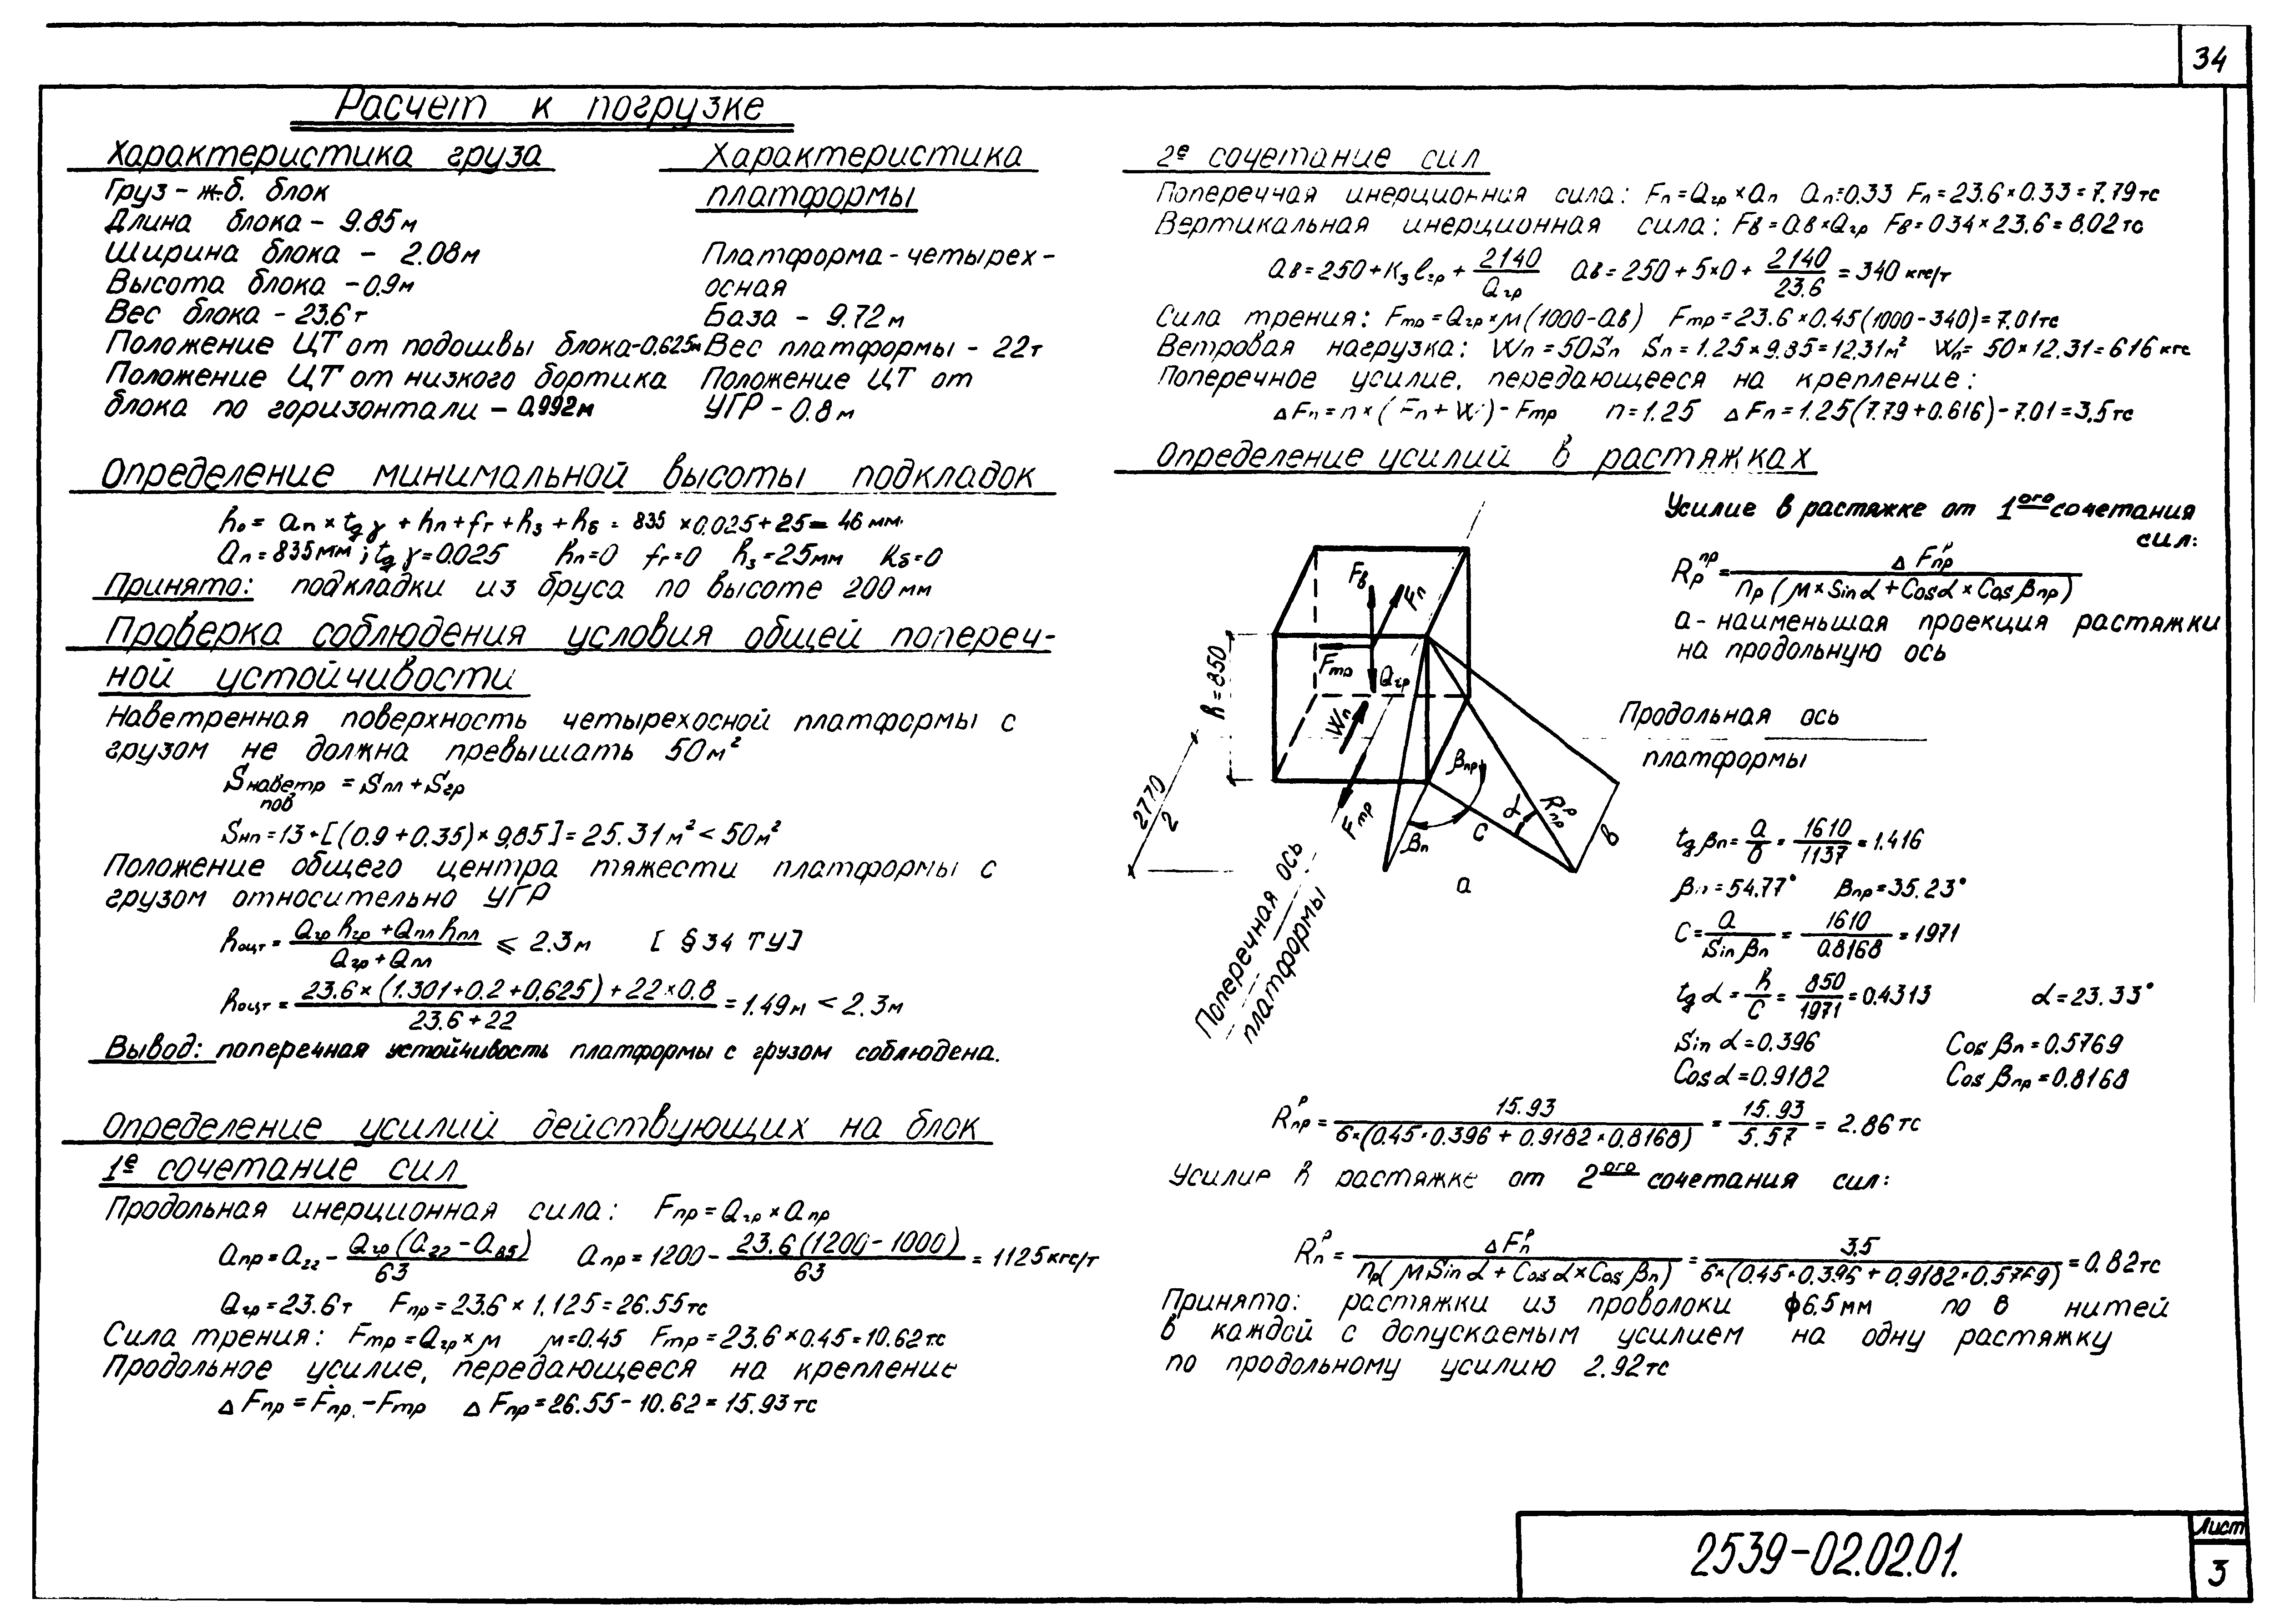 34
Расчет к погрузке
Характеристика груза
Груз – ж.б. блок
Длина блока – 9.85м
Ширина блока – 2.08м
Высота блока – 0.9м
Вес блока – 23.6т
Положение ЦТ от подошвы блока-0.625м
Положение ЦТ от низкого бортика
блока по горизонтали – 0.992м
Характеристика
платформы
Платформа - четырех-
осная
База – 9.72м
Вес платформы – 22т
Положение ЦТ от
УГР – 0.8м
Определение минимальной высоты подкладок
h₀ = aп × tg γ + hп + fг + h₃ + hб = 835 × 0.025 + 25 = 46 мм.
aп = 835мм ; tg γ = 0.025 hп=0 fг=0 h₃=25мм hб=0
Принято: подкладки из бруса по высоте 200мм
Проверка соблюдения условия общей попереч-
ной устойчивости
Наветренная поверхность четырехосной платформы с
грузом не должна превышать 50м²
Sнаветр пов = Sпл + Sгр
Sнп = 13 + [(0.9 + 0.35) × 9.85] = 25.31 м² < 50м²
Положение общего центра тяжести платформы с
грузом относительно УГР
hоцт = (Qгр hгр + Qпл hпл) / (Qгр + Qпл) ⩽ 2.3м [ §34 ТУ]
hоцт = (23.6 × (1.301+0.2+0.625) + 22×0.8) / (23.6+22) = 1.49м < 2.3м
Вывод: поперечная устойчивость платформы с грузом соблюдена.
Определение усилий действующих на блок
1ᵉ сочетание сил
Продольная инерционная сила: Fпр = Qгр × aпр
aпр = a₂₂ - Qгр (a₂₂ - a₈₅) / 63 aпр = 1200 - 23.6 (1200 - 1000) / 63 = 1125кгс/т
Qгр = 23.6т Fпр = 23.6 × 1.125 = 26.55тс
Сила трения: Fтр = Qгр × м м=0.45 Fтр = 23.6 × 0.45 = 10.62тс
Продольное усилие, передающееся на крепление
Δ Fпр = Fпр. – Fтр Δ Fпр = 26.55 – 10.62 = 15.93тс
2ᵉ сочетание сил
Поперечная инерционная сила: Fп = Qгр × aп aп=0.33 Fп = 23.6 × 0.33 = 7.79тс
Вертикальная инерционная сила: Fв = aв × Qгр Fв = 034 × 23.6 = 8.02тс
aв = 250 + K₃ lгр + 2140 / Qгр aв = 250 + 5×0 + 2140 / 23.6 = 340 кгс/т
Сила трения: Fтр = Qгр × м (1000 - aв) Fтр = 23.6 × 0.45 (1000 - 340) = 7.01тс
Ветровая нагрузка: Wп = 50Sп Sп = 1.25 × 9.85 = 12.31м² Wп = 50 × 12.31 = 616 кгс
Поперечное усилие, передающееся на крепление:
Δ Fп = n × ( Fп + W ) - Fтр n = 1.25 Δ Fп = 1.25 (7.79 + 0.616) - 7.01 = 3.5тс
Определение усилий в растяжках
Усилие в растяжке от 1ᵒᵍᵒ сочетания
сил:
Rрпр = Δ Fпрр / nр (м × Sin α + Cos α × Cos βпр)
a - наименьшая проекция растяжки
на продольную ось
Fв
Fп
Fтр
Qгр
h = 850
Wп
2770 / 2
Fтр
βпр
βп
c
α
Rпрр
в
a
Продольная ось
платформы
Поперечная ось
платформы
tg βп = a / в = 1610 / 1137 = 1.416
βп = 54.77° βпр = 35.23°
C = a / Sin βп = 1610 / 0.8168 = 1971
tg α = h / c = 850 / 1971 = 0.4313 α = 23.33°
Sin α = 0.396 Cos βп = 0.5769
Cos α = 0.9182 Cos βпр = 0.8168
Rпрр = 15.93 / 6×(0.45 · 0.396 + 0.9182 × 0.8168) = 15.93 / 5.57 = 2.86 тс
Усилие в растяжке от 2ᵒᵍᵒ сочетания сил:
Rпр = Δ Fпр / nр( м Sin α + Cos α × Cos βп) = 3.5 / 6×(0.45 · 0.396 + 0.9182 · 0.5769) = 0.82тс
Принято: растяжки из проволоки ϕ6.5мм по 8 нитей
в каждой с допускаемым усилием на одну растяжку
по продольному усилию 2.92тс
2539-02.02.01.
Лист
3